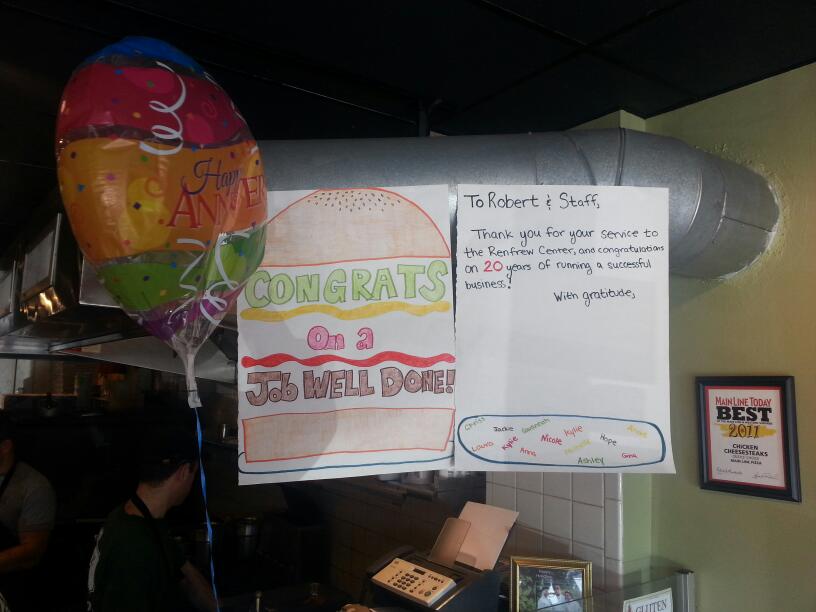 Happy
ANNIVER
CONGRATS
On a
Job WELL DONE!
To Robert & Staff,
Thank you for your service to
the Renfrew Center, and congratulations
on 20 years of running a successful
business!
With gratitude,
Jackie Savannah Kylie Hope
Laura Kylie Anna Nicole Michelle Ashley Gina
MAIN LINE TODAY
BEST
2011
CHICKEN
CHEESESTEAKS
MAIN LINE PIZZA
GLUTEN